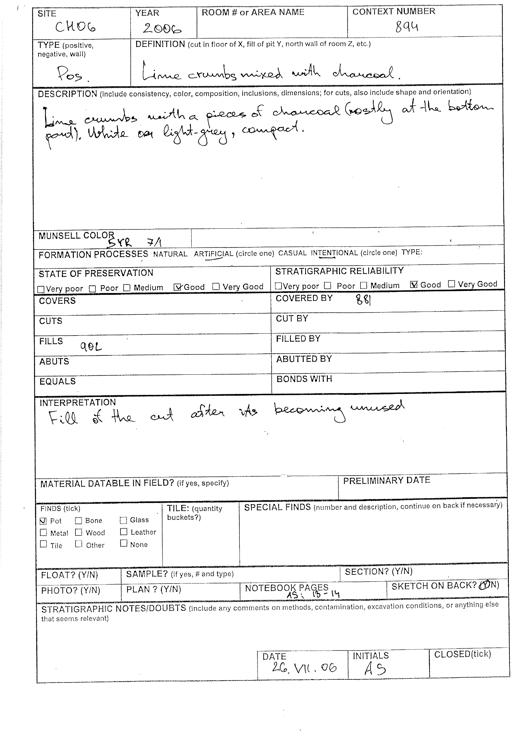 SITE YEAR ROOM # or AREA NAME CONTEXT NUMBER
CH06 2006 894
TYPE (positive, negative, wall) DEFINITION (cut in floor of X, fill of pit Y, north wall of room Z, etc.)
Pos. Lime crumbs mixed with charcoal.
DESCRIPTION (include consistency, color, composition, inclusions, dimensions; for cuts, also include shape and orientation)
Lime crumbs with a pieces of charcoal (mostly at the bottom
part). White or light-grey, compact.
MUNSELL COLOR
5YR 7/1
FORMATION PROCESSES NATURAL ARTIFICIAL (circle one) CASUAL INTENTIONAL (circle one) TYPE:
STATE OF PRESERVATION STRATIGRAPHIC RELIABILITY
Very poor Poor Medium Good Very Good Very poor Poor Medium Good Very Good
COVERS COVERED BY 881
CUTS CUT BY
FILLS 902 FILLED BY
ABUTS ABUTTED BY
EQUALS BONDS WITH
INTERPRETATION
Fill of the cut after its becoming unused
MATERIAL DATABLE IN FIELD? (if yes, specify) PRELIMINARY DATE
FINDS (tick) TILE: (quantity buckets?) SPECIAL FINDS (number and description, continue on back if necessary)
Pot Bone Glass
Metal Wood Leather
Tile Other None
FLOAT? (Y/N) SAMPLE? (if yes, # and type) SECTION? (Y/N)
PHOTO? (Y/N) PLAN ? (Y/N) NOTEBOOK PAGES SKETCH ON BACK? (Y/N)
AS: 13-14
STRATIGRAPHIC NOTES/DOUBTS (include any comments on methods, contamination, excavation conditions, or anything else
that seems relevant)
DATE INITIALS CLOSED(tick)
26. VII. 06 AS